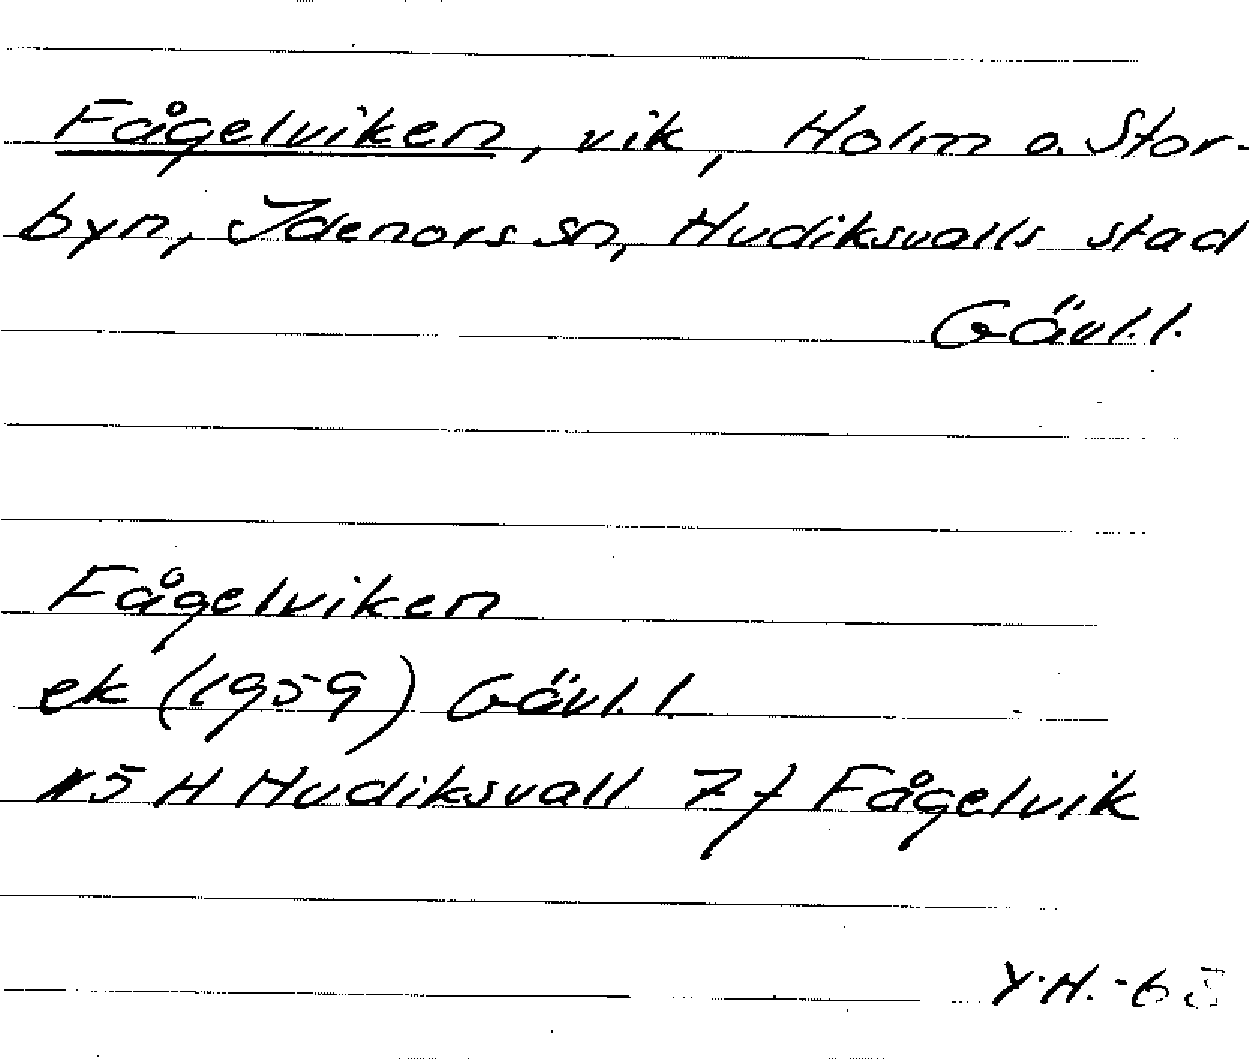 Fågelviken, vik, Holm o. Stor-
byn, Idenors sn, Hudiksvalls stad
Gävl.l.
Fågelviken
ek (1959) Gävl.l.
15 H Hudiksvall 7f Fågelvik
Y.H.-63